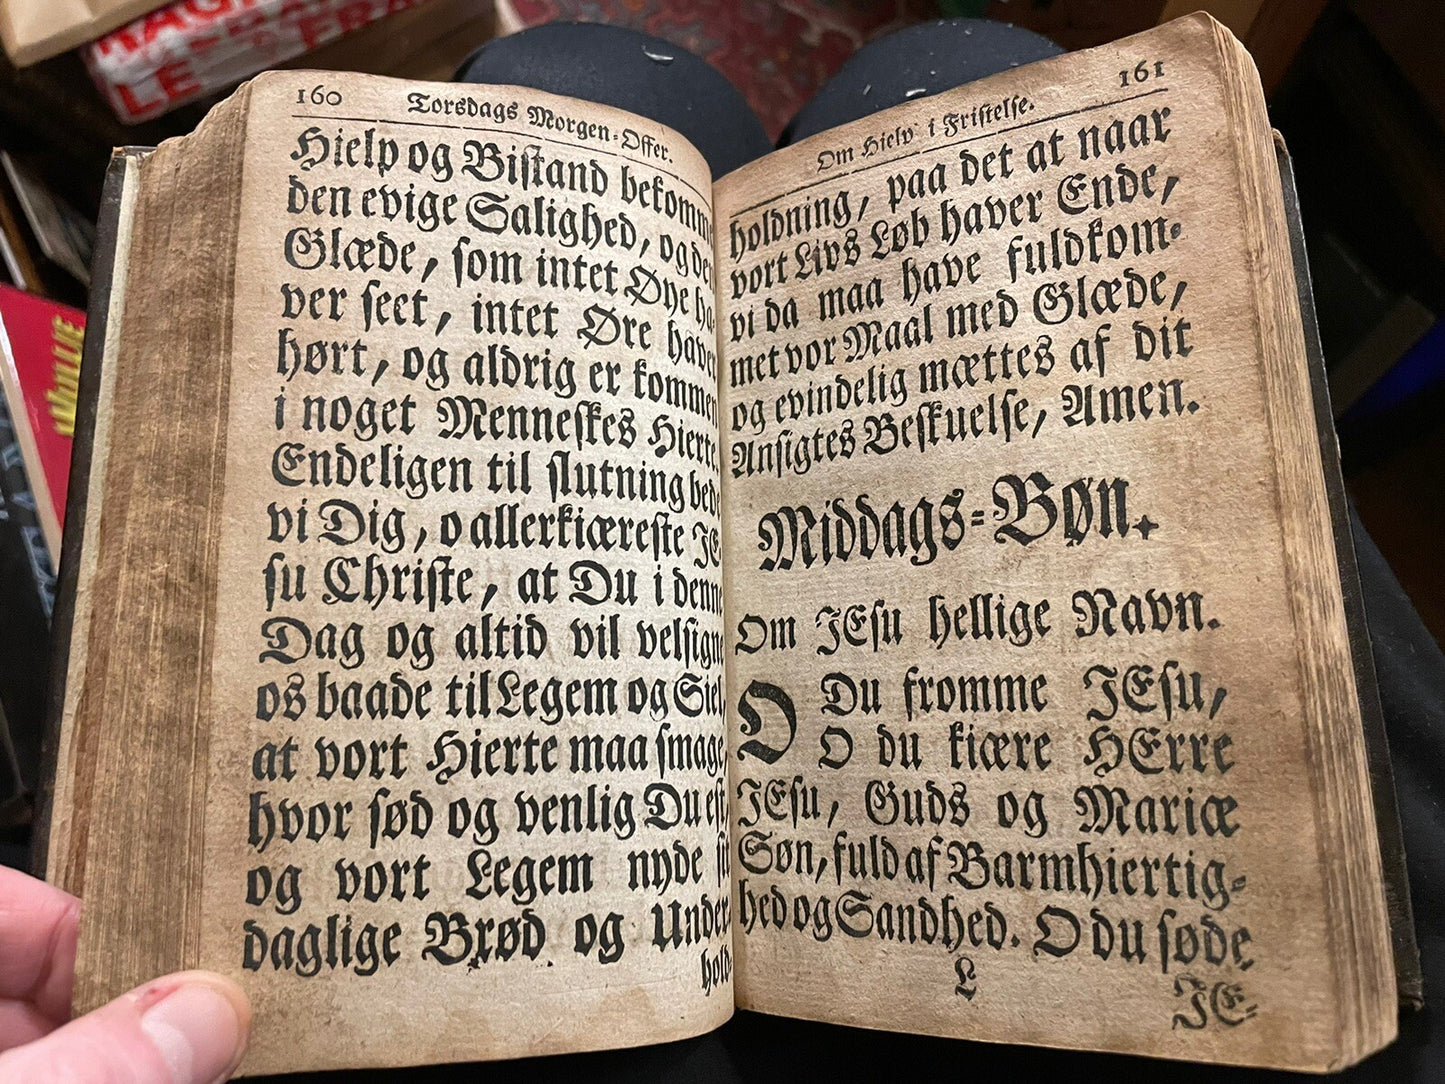 160 Torsdags Morgen-Offer.
Hielp og Bistand bekomme
den evige Salighed, og den
Glæde, som intet Øye ha-
ver seet, intet Øre haver
hørt, og aldrig er kommen
i noget Menneskes Hierte.
Endeligen til slutning bede
vi Dig, o allerkiæreste JE-
su Christe, at Du i denne
Dag og altid vil velsigne
os baade til Legem og Siel,
at vort Hierte maa smage,
hvor sød og venlig Du est,
og vort Legem nyde sit
daglige Brød og Under-
hold-
Om Hielp i Fristelse. 161
holdning, paa det at naar
vort Livs Løb haver Ende,
vi da maa have fuldkom-
met vor Maal med Glæde,
og evindelig mættes af dit
Ansigtes Beskuelse, Amen.
Middags-Bøn.
Om JEsu hellige Navn.
O Du fromme JEsu,
O du kiære HErre
JEsu, Guds og Mariæ
Søn, fuld af Barmhiertig-
hed og Sandhed. O du søde
L
JE-